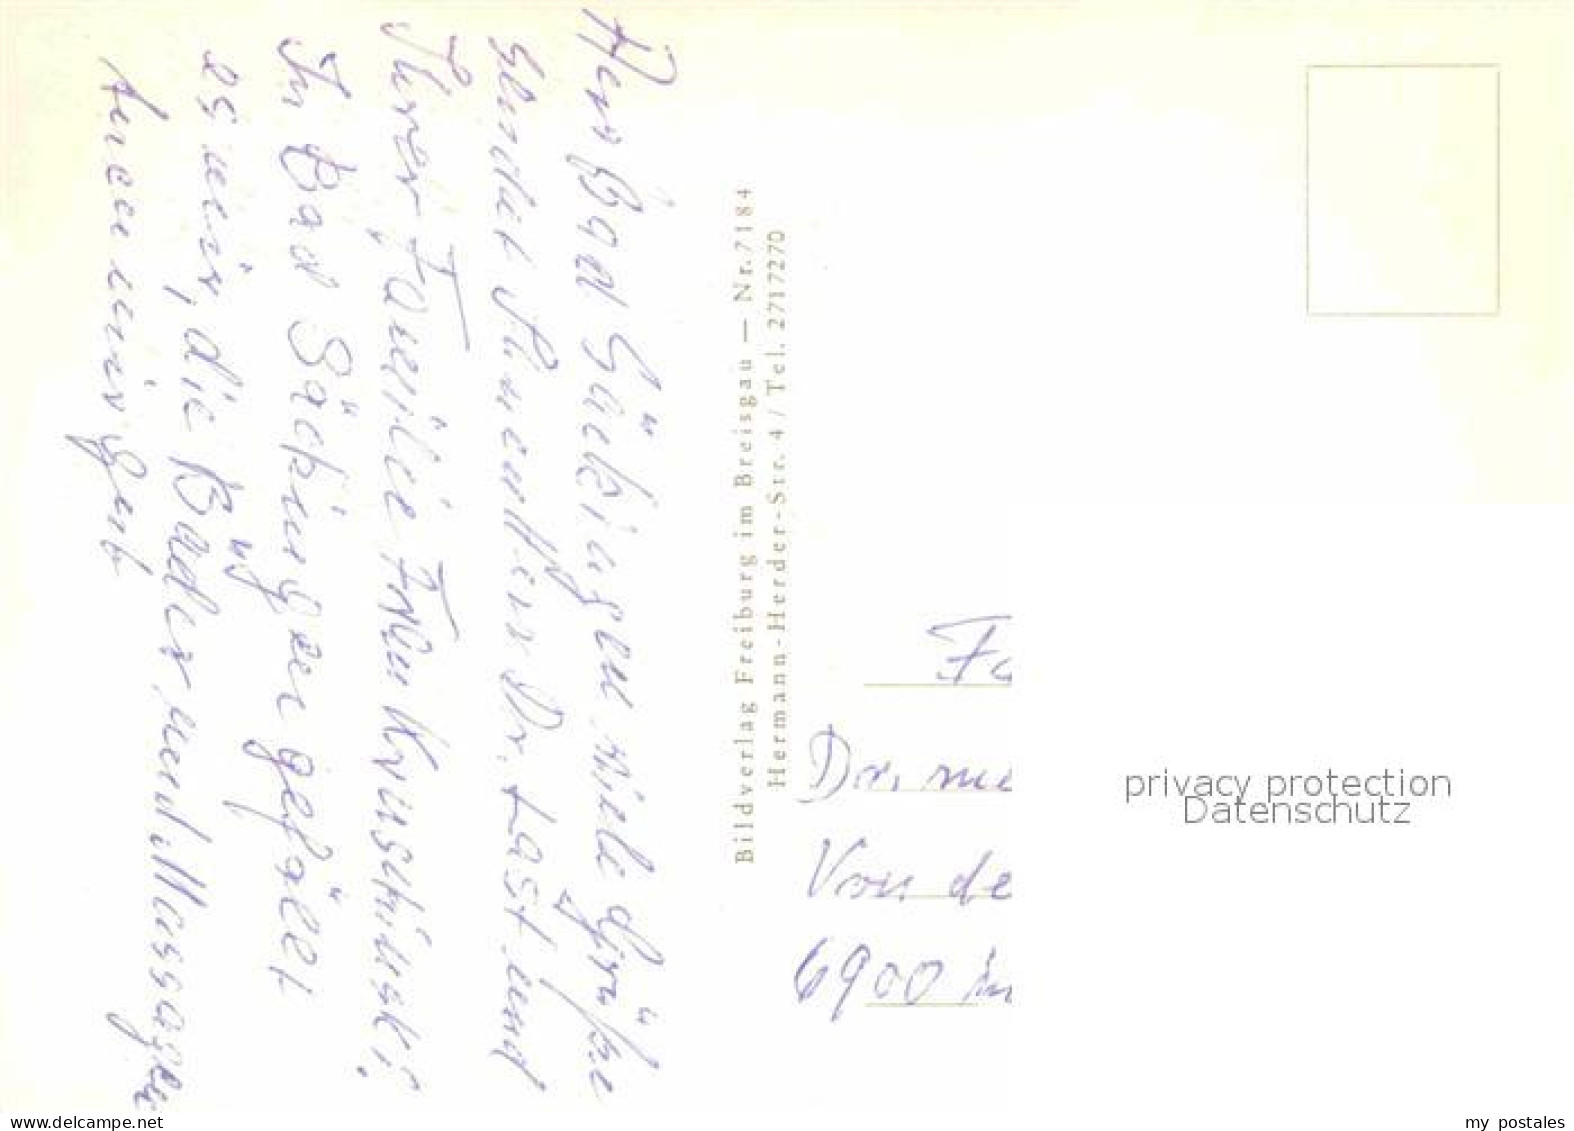 Aus Bad Säckingen viele Grüße
sendet Rosentin Dr. Last und
Ihrer Familie Frau Kruschinski.
In Bad Säckingen gefällt
es mir, die Bäder und Massagen
tuen mir gut
Bildverlag Freiburg im Breisgau — Nr. 7184
Hermann-Herder-Str. 4 / Tel. 2717270
Fa
Dr. me
Von de
6900 in
privacy protection
Datenschutz
delcampe.net
my_postales